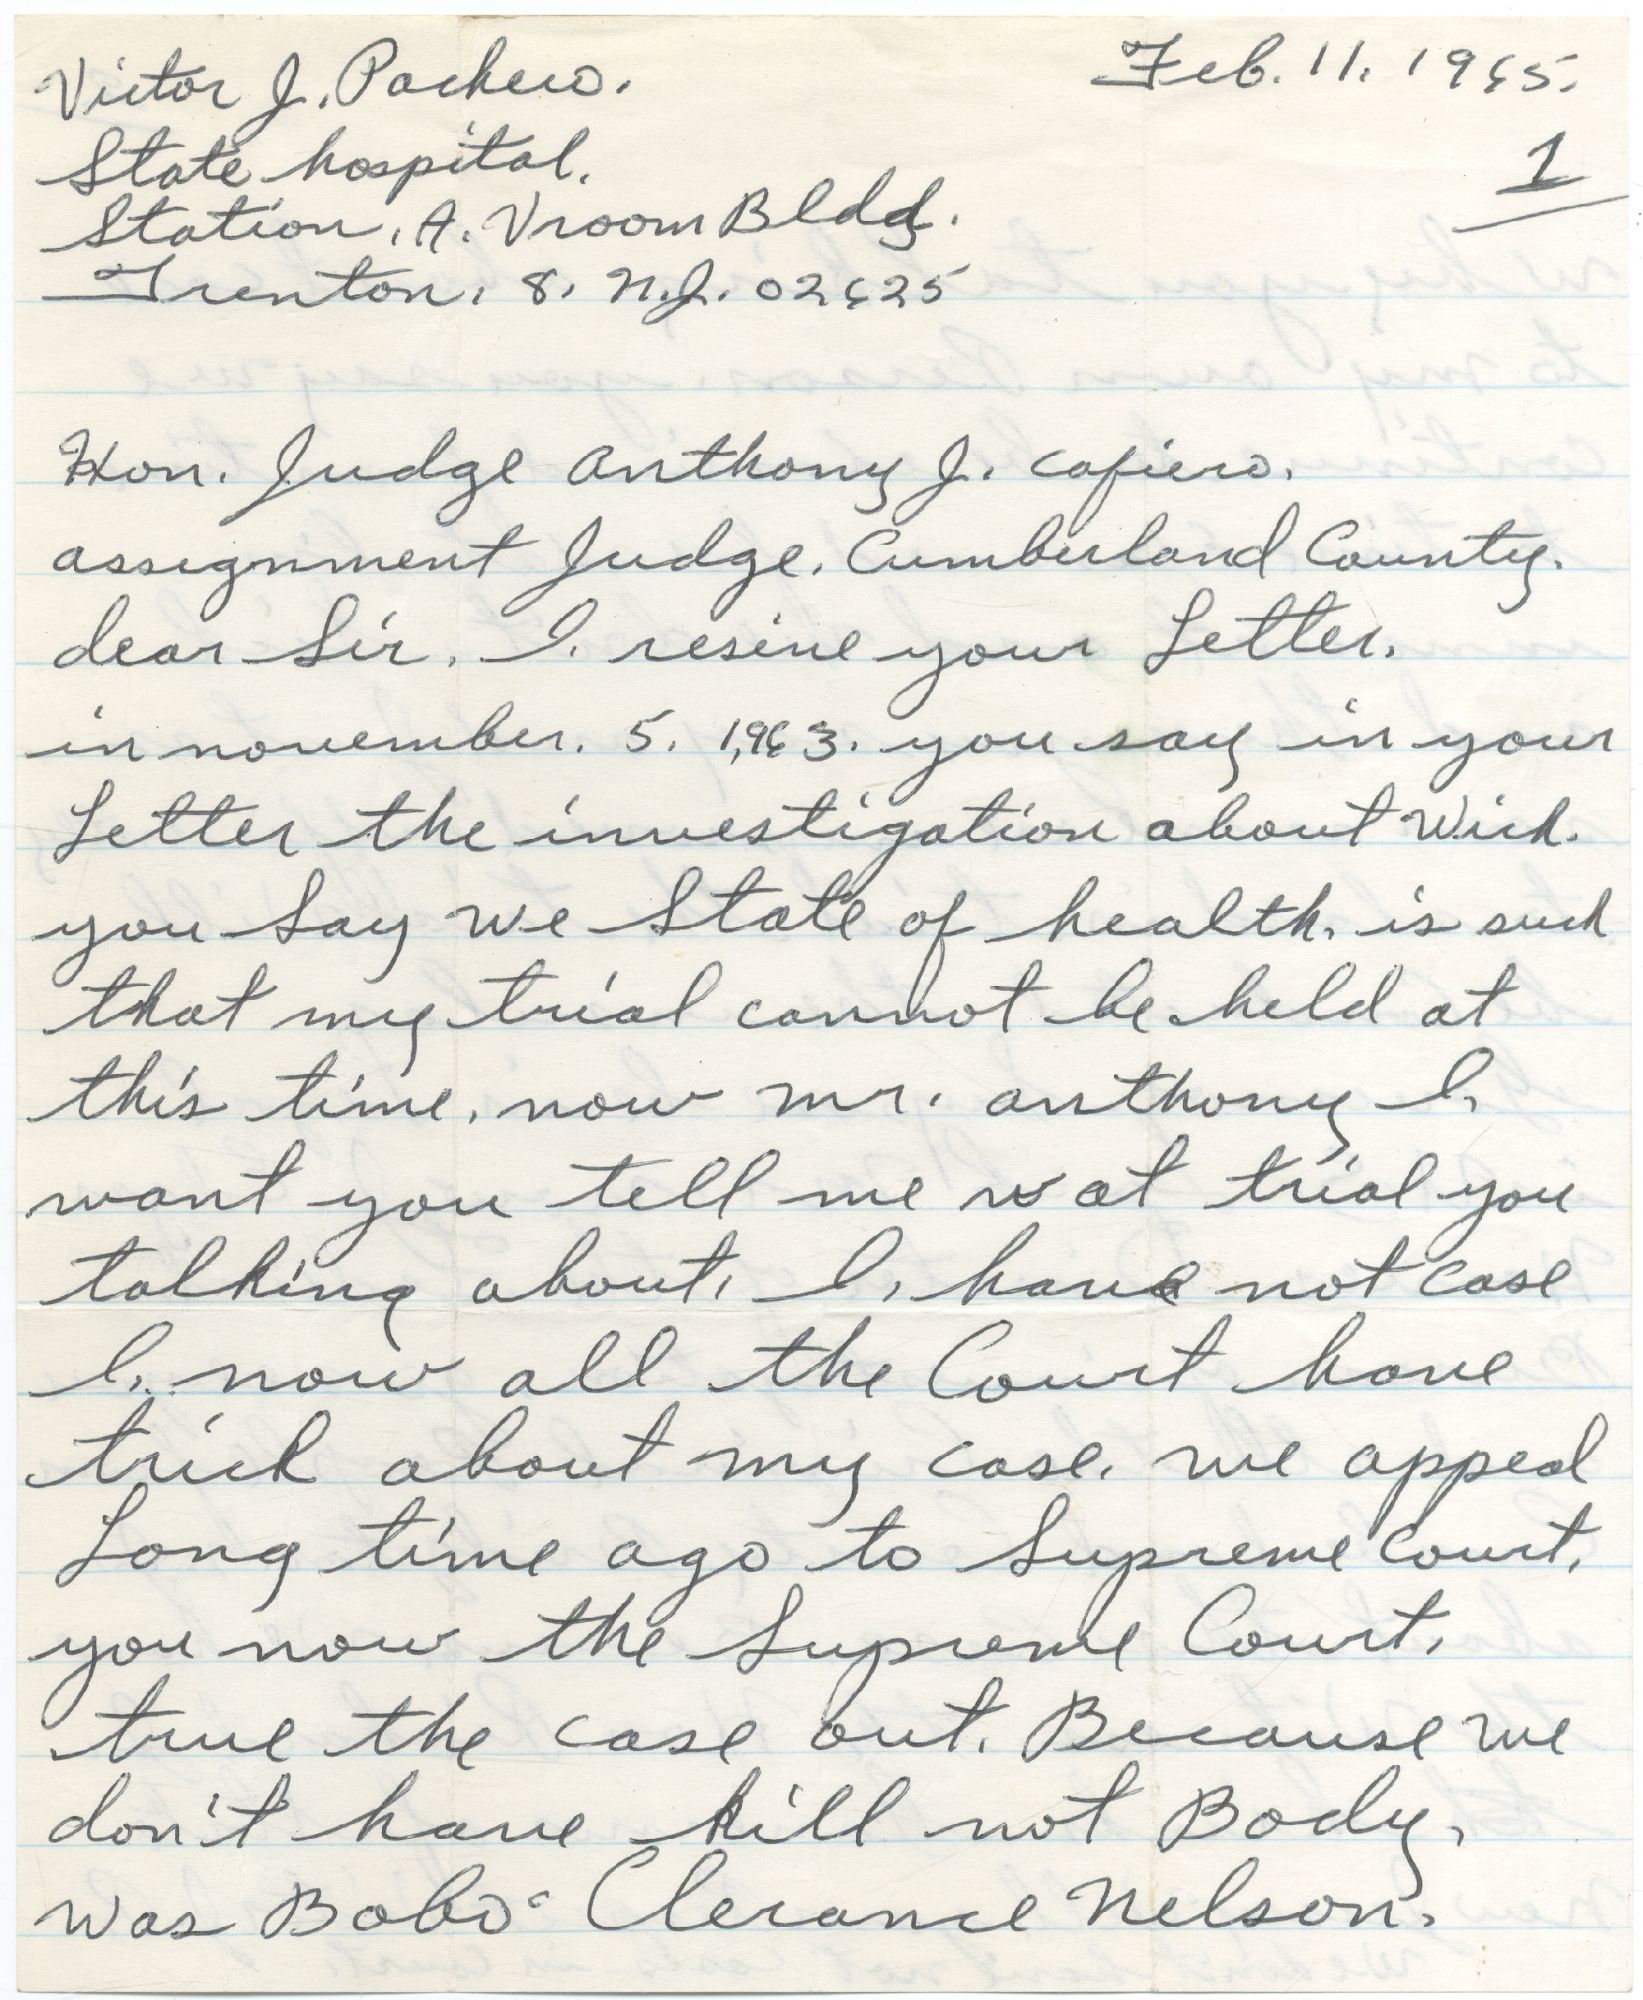 Victor J. Pacheco.
Feb. 11. 1965.
1
State hospital.
Station. A. Vroom Bldg.
Trenton. 8. N.J. 02625
Hon. Judge anthony J. cafiero.
assignment Judge. Cumberland County.
dear Sir. I. resive your Letter.
in november. 5. 1,963. you say in your
Letter the investigation about Wich.
you Say we State of health. is such
that my trial cannot be held at
this time. now mr. anthony I,
want you tell me wat trial you
talking about, I, have not case
I, now all the Court have
trick about my case. we appeal
Long time ago to Supreme Court.
you now the Supreme Court.
true the case out. Because we
don't have kill not Body,
was Bobo Clerance Nelson.